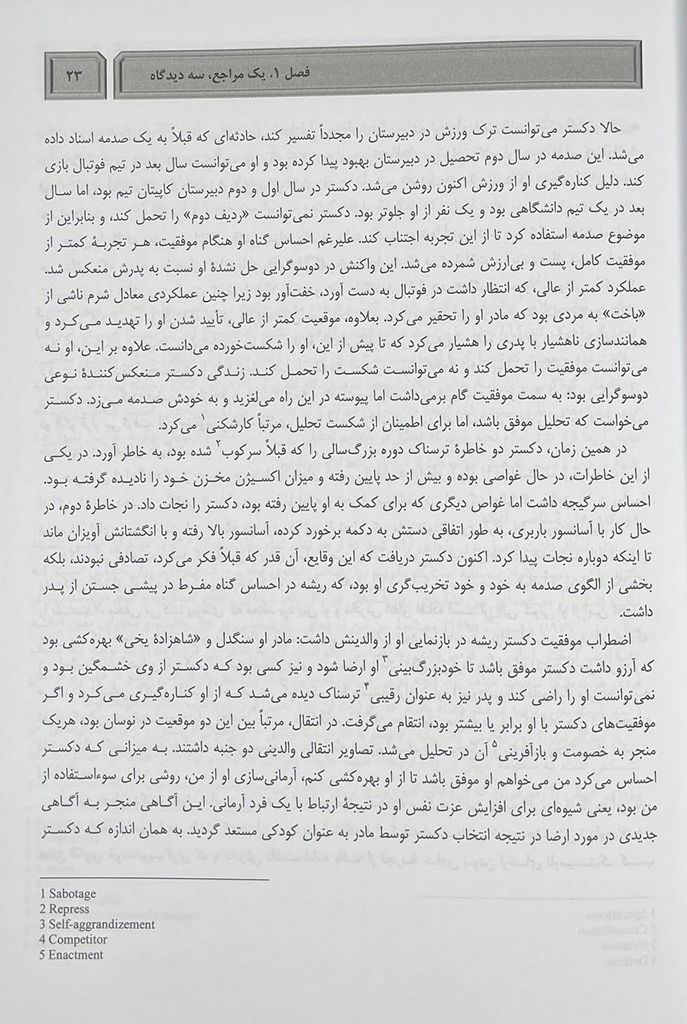 فصل ۱. یک مراجع، سه دیدگاه
۲۳
حالا دکستر می‌توانست ترک ورزش در دبیرستان را مجدداً تفسیر کند، حادثه‌ای که قبلاً به یک صدمه اسناد داده
می‌شد. این صدمه در سال دوم تحصیل در دبیرستان بهبود پیدا کرده بود و او می‌توانست سال بعد در تیم فوتبال بازی
کند. دلیل کناره‌گیری او از ورزش اکنون روشن می‌شد. دکستر در سال اول و دوم دبیرستان کاپیتان تیم بود، اما سال
بعد در یک تیم دانشگاهی بود و یک نفر از او جلوتر بود. دکستر نمی‌توانست «ردیف دوم» را تحمل کند، و بنابراین از
موضوع صدمه استفاده کرد تا از این تجربه اجتناب کند. علیرغم احساس گناه او هنگام موفقیت، هر تجربهٔ کمتر از
موفقیت کامل، پست و بی‌ارزش شمرده می‌شد. این واکنش در دوسوگرایی حل نشدهٔ او نسبت به پدرش منعکس شد.
عملکرد کمتر از عالی، که انتظار داشت در فوتبال به دست آورد، خفت‌آور بود زیرا چنین عملکردی معادل شرم ناشی از
«باخت» به مردی بود که مادر او را تحقیر می‌کرد. بعلاوه، موقعیت کمتر از عالی، تأیید شدن او را تهدید می‌کرد و
همانندسازی ناهشیار با پدری را هشیار می‌کرد که تا پیش از این، او را شکست‌خورده می‌دانست. علاوه بر این، او نه
می‌توانست موفقیت را تحمل کند و نه می‌توانست شکست را تحمل کند. زندگی دکستر منعکس‌کنندهٔ نوعی
دوسوگرایی بود: به سمت موفقیت گام برمی‌داشت اما پیوسته در این راه می‌لغزید و به خودش صدمه می‌زد. دکستر
می‌خواست که تحلیل موفق باشد، اما برای اطمینان از شکست تحلیل، مرتباً کارشکنی۱ می‌کرد.
در همین زمان، دکستر دو خاطرهٔ ترسناک دوره بزرگ‌سالی را که قبلاً سرکوب۲ شده بود، به خاطر آورد. در یکی
از این خاطرات، در حال غواصی بوده و بیش از حد پایین رفته و میزان اکسیژن مخزن خود را نادیده گرفته بود.
احساس سرگیجه داشت اما غواص دیگری که برای کمک به او پایین رفته بود، دکستر را نجات داد. در خاطرهٔ دوم، در
حال کار با آسانسور باربری، به طور اتفاقی دستش به دکمه برخورد کرده، آسانسور بالا رفته و با انگشتانش آویزان ماند
تا اینکه دوباره نجات پیدا کرد. اکنون دکستر دریافت که این وقایع، آن قدر که قبلاً فکر می‌کرد، تصادفی نبودند، بلکه
بخشی از الگوی صدمه به خود و خود تخریب‌گری او بود، که ریشه در احساس گناه مفرط در پیشی جستن از پدر
داشت.
اضطراب موفقیت دکستر ریشه در بازنمایی او از والدینش داشت: مادر او سنگدل و «شاهزادهٔ یخی» بهره‌کشی بود
که آرزو داشت دکستر موفق باشد تا خودبزرگ‌بینی۳ او ارضا شود و نیز کسی بود که دکستر از وی خشمگین بود و
نمی‌توانست او را راضی کند و پدر نیز به عنوان رقیبی۴ ترسناک دیده می‌شد که از او کناره‌گیری می‌کرد و اگر
موفقیت‌های دکستر با او برابر یا بیشتر بود، انتقام می‌گرفت. در انتقال، مرتباً بین این دو موقعیت در نوسان بود، هریک
منجر به خصومت و بازآفرینی۵ آن در تحلیل می‌شد. تصاویر انتقالی والدینی دو جنبه داشتند. به میزانی که دکستر
احساس می‌کرد من می‌خواهم او موفق باشد تا از او بهره‌کشی کنم، آرمانی‌سازی او از من، روشی برای سوءاستفاده از
من بود، یعنی شیوه‌ای برای افزایش عزت نفس او در نتیجهٔ ارتباط با یک فرد آرمانی. این آگاهی منجر به آگاهی
جدیدی در مورد ارضا در نتیجه انتخاب دکستر توسط مادر به عنوان کودکی مستعد گردید. به همان اندازه که دکستر
1 Sabotage
2 Repress
3 Self-aggrandizement
4 Competitor
5 Enactment